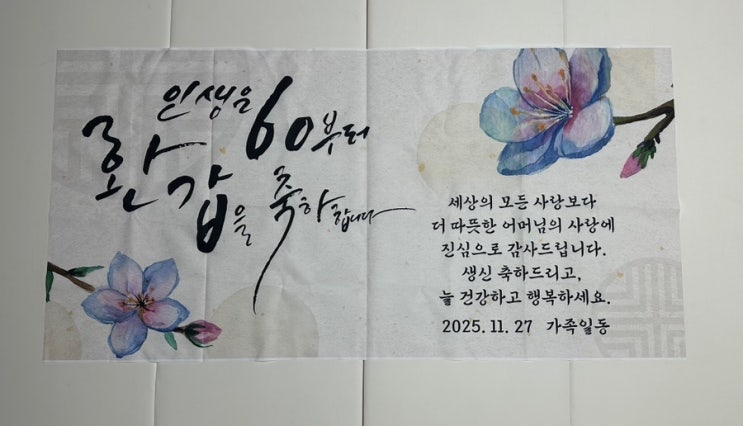 인생은 60부터
환갑을 축하합니다
세상의 모든 사랑보다
더 따뜻한 어머님의 사랑에
진심으로 감사드립니다.
생신 축하드리고,
늘 건강하고 행복하세요.
2025. 11. 27 가족일동